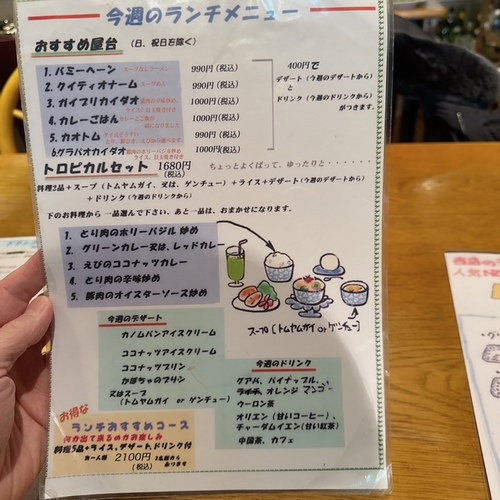 今週のランチメニュー
おすすめ屋台 (日、祝日を除く)
1. バミーヘーン 990円(税込)
2. クイティオナーム 990円(税込)
3. ガイプリカイダオ 1000円(税込)
4. カレーごはん 1000円(税込)
5. カオトム 990円(税込)
6.グラパオカイダオ 1000円(税込)
400円で
デザート (今週のデザートから)
と
ドリンク (今週のドリンクから)
がつきます。
トロピカルセット 1680円 ちょっとよくばって、ゆったりと・・・・・・
(税込)
料理2品+スープ (トムヤムガイ、又は、ゲンチュー) +ライス+デザート(今週のデザートから)
+ドリンク (今週のドリンクから)
下のお料理から 一品選んで下さい、あと一品は、おまかせになります。
1. とり肉のホリーバジル炒め
2. グリーンカレー又は、レッドカレー
3. えびのココナッツカレー
4. とり肉の辛味炒め
5. 豚肉のオイスターソース炒め
スープ [トムヤムガイ orゲンチュー]
今週のデザート
カノムパンアイスクリーム
ココナッツアイスクリーム
ココナッツプリン
かぼちゃのプリン
又はスープ
(トムヤムガイ or ゲンチュー)
今週のドリンク
グアバ、パイナップル、
オレンジ マンゴー
ウーロン茶
オリエン (甘いコーヒー)、
チャーダムイエン(甘い紅茶)
中国茶、カフェ
お得な
ランチおすすめコース
何が出て来るのかお楽しみ
料理5品+ライス、デザート、ドリンク付
お一人様 2100円 2名様から
(税込) あります